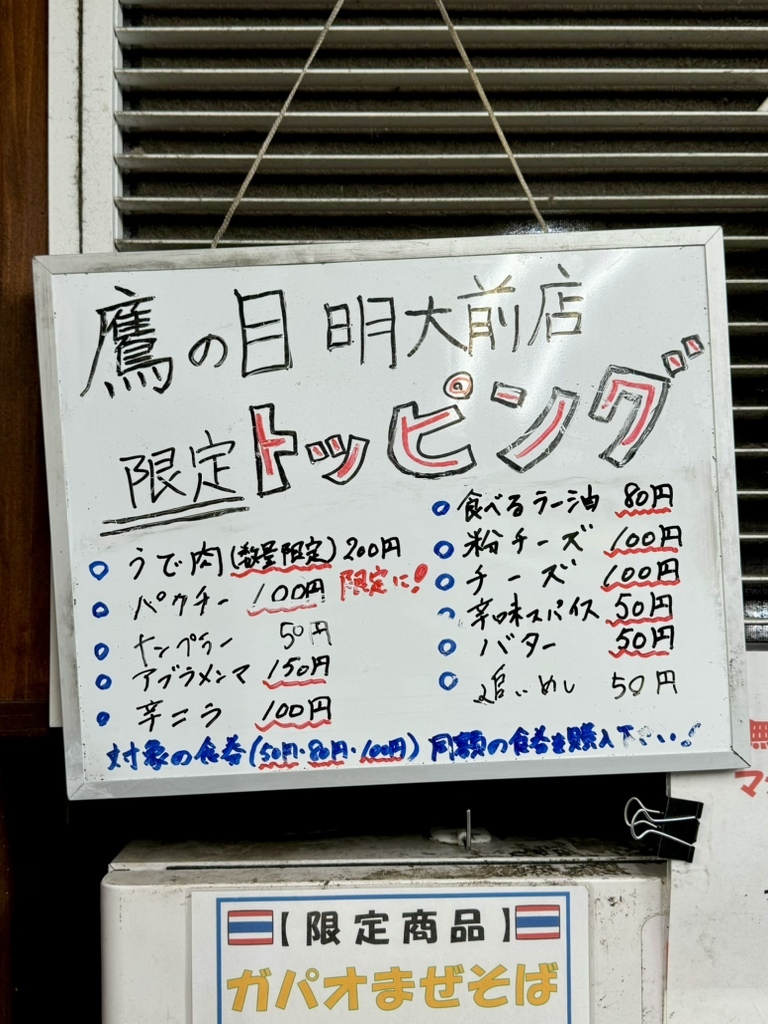 鷹の目 明大前店
限定トッピング
うで肉(数量限定)200円
パクチー 100円 限定に!
ナンプラー 50円
アブラメンマ 150円
辛ニラ 100円
食べるラー油 80円
粉チーズ 100円
チーズ 100円
辛味スパイス 50円
バター 50円
追いめし 50円
対象の食券(50円・80円・100円)同額の食券を購入下さい!
【限定商品】
ガパオまぜそば